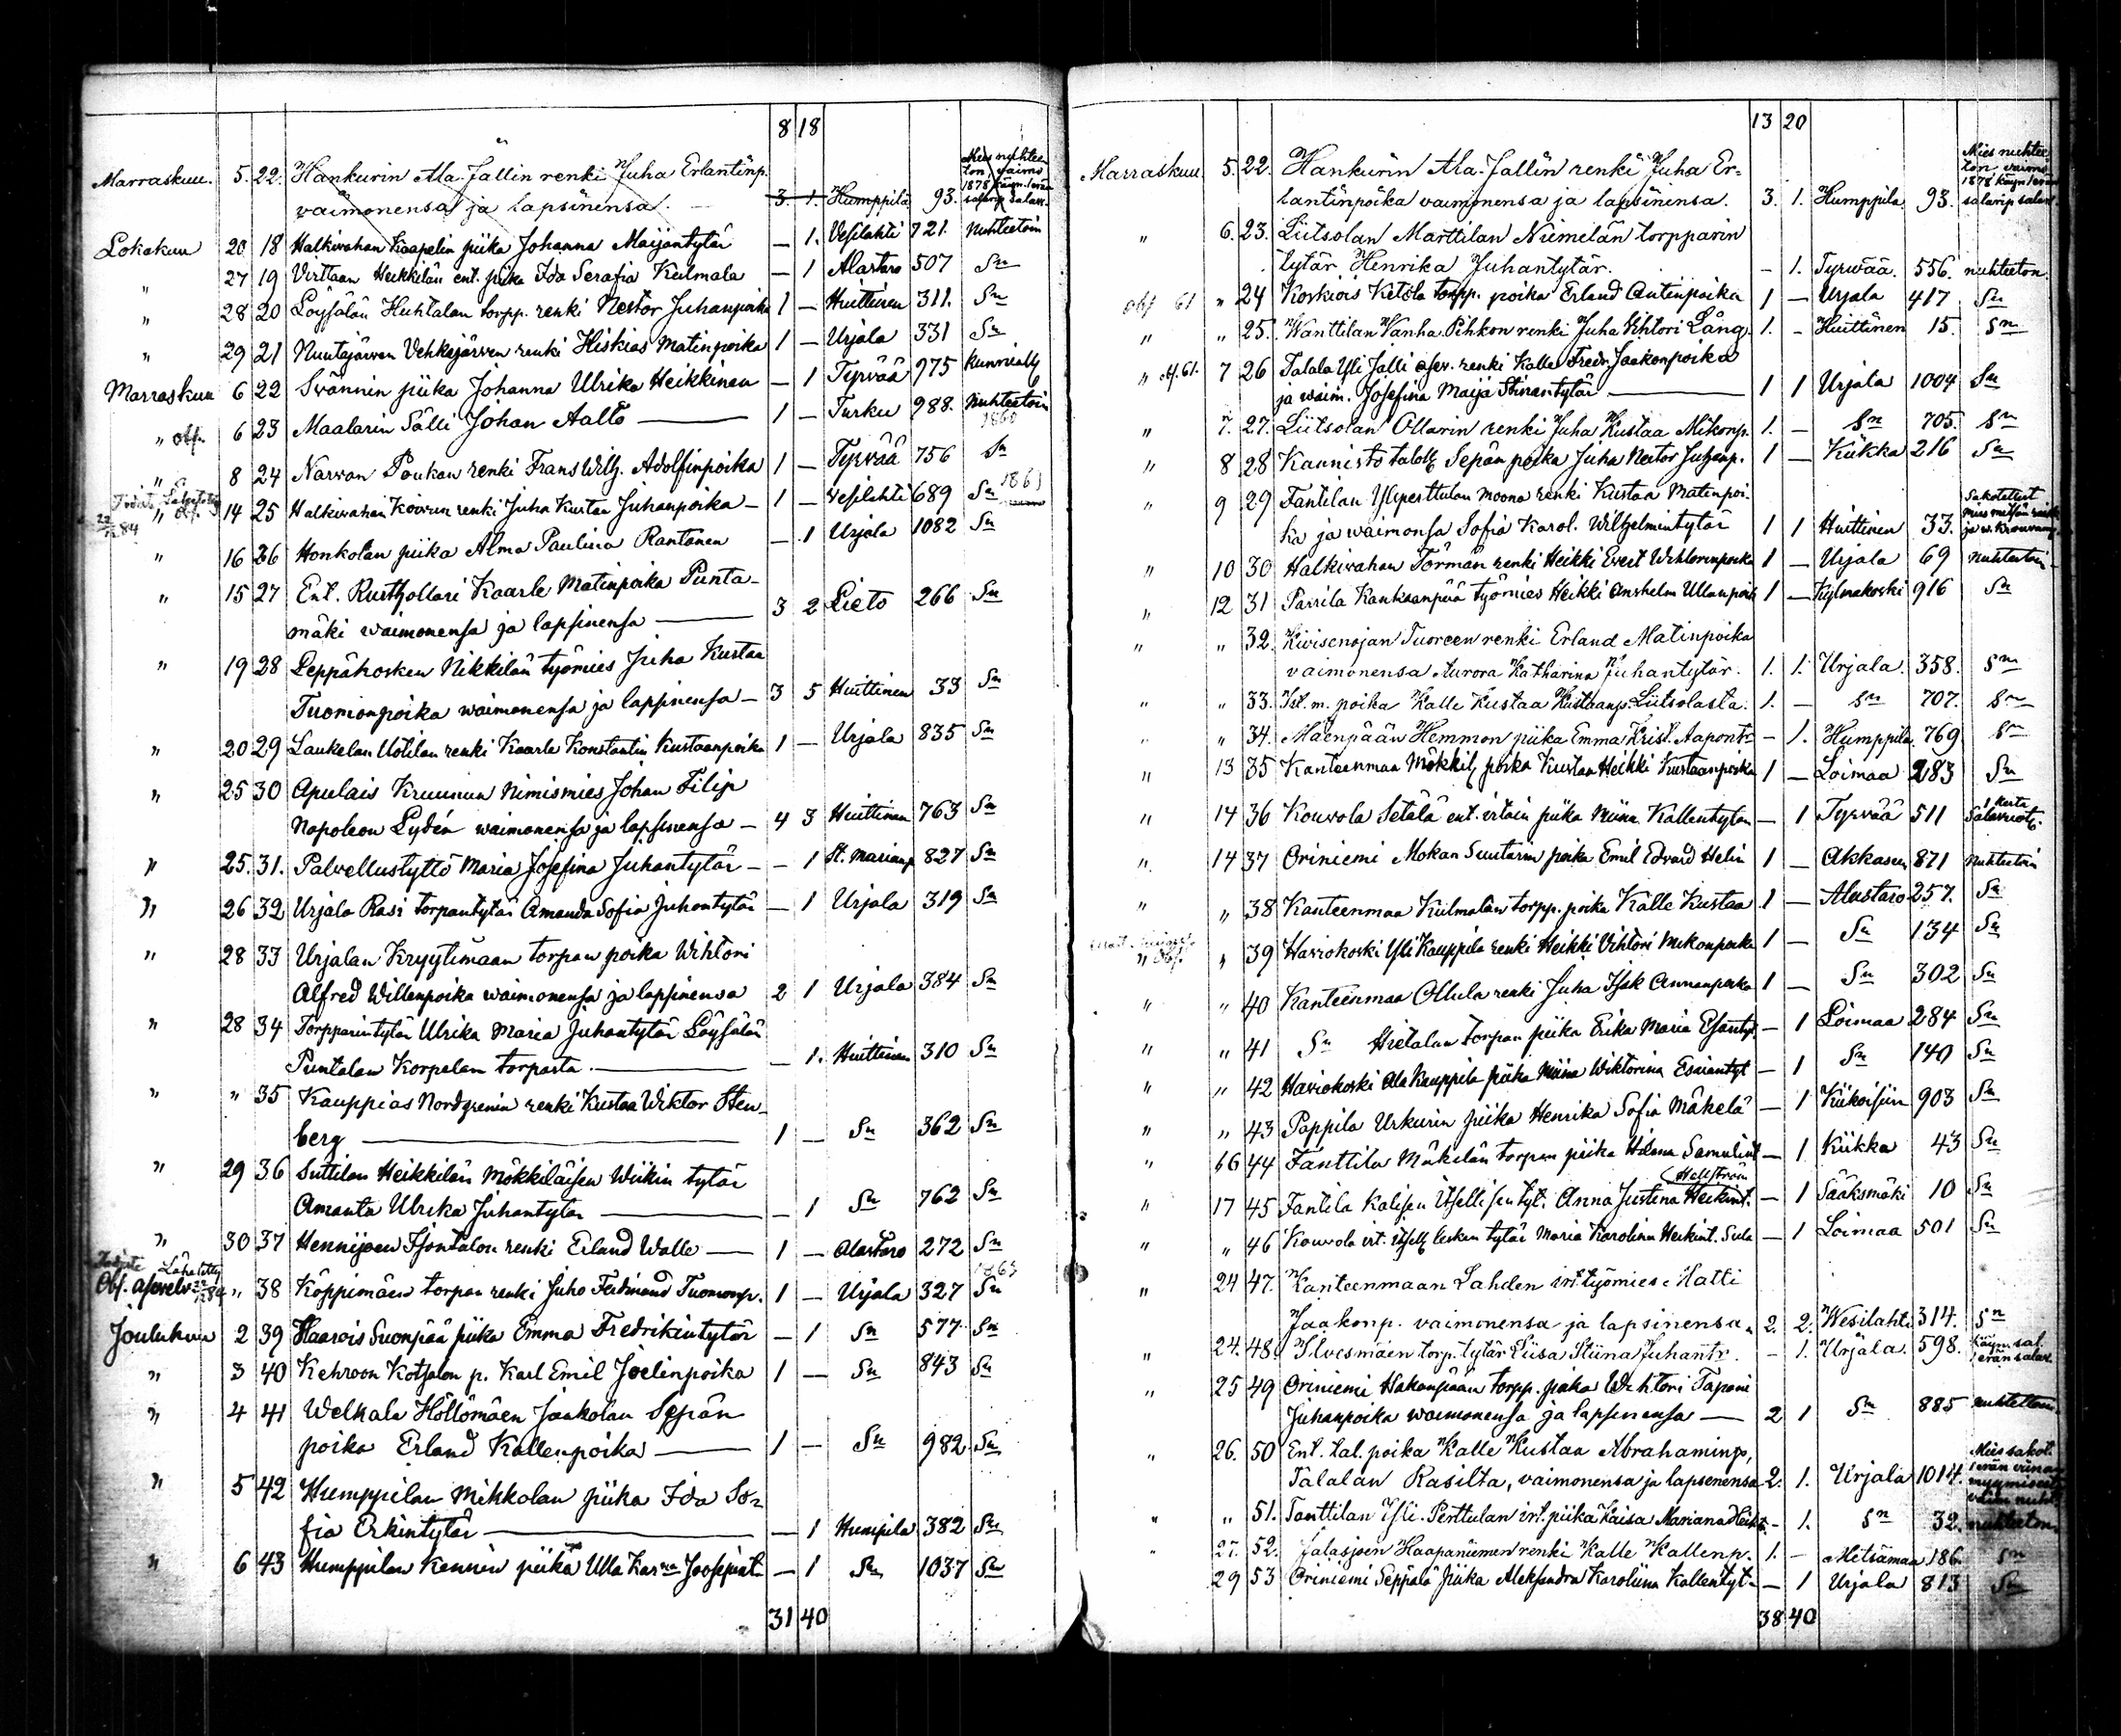 8 18
Marraskuu. 5. 22. Hankurin Ala-Jallin renki Juha Erlantinp. Mies nuhteeton, vaimo 1878
vaimonensa ja lapsinensa. — 3. 1. Humppila 93.
Lokakuu 20 18 Halkivahan Kaapelin piika Johanna Maijantytär — 1. Vesilahti 721. Nuhteetoin
" 27 19 Virttaan Heikkilän ent. piika Ida Serafia Kulmala — 1 Alastaro 507 Sn
" 28 20 Löysälän Huhtalan torpp. renki Nestor Juhanpoika 1 — Huittinen 311. Sn
" 29 21 Nuutajärven Vehkajärven renki Hiskias Matinpoika 1 — Urjala 331 Sn
Marraskuu 6 22 Svännin piika Johanna Ulrika Heikkinen — 1 Tyrvää 975
" obs. 6 23 Maalarin Sälli Johan Aalto — 1 — Turku 988. Nuhteetoin
1860
" 8 24 Narvan Poukan renki Frans Wilh. Adolfinpoika 1 — Tyrvää 756 Sn
" obs. 14 25 Halkivahan Koivun renki Juha Kustaa Juhanpoika — 1 — Vesilahti 689 Sn 1861
" 16 26 Honkolan piika Alma Paulina Rantanen — 1 Urjala 1082 Sn
" 15 27 Ent. Rusthollari Kaarle Matinpoika Punta-
mäki waimonensa ja lapsinensa — 3 2 Lieto 266 Sn
" 19 28 Leppäkosken Nikkilän työmies Juha Kustaa
Tuomonpoika waimonensa ja lapsinensa — 3 5 Huittinen 33 Sn
" 20 29 Laukelan Uotilan renki Kaarle Konstantin Kustaanpoika 1 — Urjala 835 Sn
" 25 30 Apulais Kruunun Nimismies Johan Filip
Napoleon Lydén waimonensa ja lapsinensa — 4 3 Huittinen 763 Sn
" 25. 31. Palvellustyttö Maria Josefina Juhantytär — — 1 St. Marianp 827 Sn
" 26 32 Urjala Rasi torpantytär Amanda Sofia Juhontytär — 1 Urjala 319 Sn
" 28 33 Urjalan Kryytimaan torpan poika Wihtori
Alfred Willenpoika waimonensa ja lapsinensa 2 1 Urjala 384 Sn
" 28 34 Torpparintytär Ulrika Maria Juhantytär Löysälän
Puntalan Korpelan torpasta. — — 1. Huittinen 310 Sn
" " 35 Kauppias Nordgrenin renki Kustaa Wiktor Sten-
berg — 1 — Sn 362 Sn
" 29 36 Suttilan Heikkilän Mökkiläisen Wiikin tytär
Amanta Ulrika Juhantytär — — 1 Sn 762 Sn
" 30 37 Hennijoen Isontalon renki Erland Walle — 1 — Alastaro 272 Sn
1863
Obs. " 38 Köppimäen torpan renki Juho Ferdinand Tuomonp. 1 — Urjala 327 Sn
Joulukuu 2 39 Haarois Suonpää piika Emma Fredrikintytär — 1 Sn 577 Sn
" 3 40 Kehroon Kotsalon p. Karl Emil Joelinpoika 1 — Sn 843 Sn
" 4 41 Welkala Höllömäen Jaakolan Sepän
poika Erland Kallenpoika — 1 — Sn 982 Sn
" 5 42 Humppilan Mikkolan piika Ida So-
fia Erkintytär — — 1 Humpila 382 Sn
" 6 43 Humppilan Kennin piika Ulla Kar Joosepint. — 1 Sn 1037 Sn
31 40
13 20
Marraskuu 5. 22. Hankurin Ala-Jallin renki Juha Er- Mies nuhteeton, vaimo 1878
lantinpoika vaimonensa ja lapsinensa. 3. 1. Humppila. 93.
" 6. 23. Liitsolan Marttilan Niemelän torpparin
tytär Henrika Juhantytär. — 1. Tyrwää. 556. nuhteeton.
Obs 61 " 24 Koskiois Ketola torpp. poika Erland Antinpoika 1 — Urjala 417 Sn
" " 25. Wanttilan Vanha Pihkon renki Juha Vihtori Lång. 1. — Huittinen 15. Sn
" obs. 61. 7 26 Talala Yli Jalli asev. renki Kalle Fredr Jaakonpoika
ja waim. Josefina Maija Stinantytär — 1 1 Urjala 1004 Sn
" 7. 27. Liitsolan Ollarin renki Juha Kustaa Mikonp. 1. — Sn 705. Sn
" 8 28 Kaunisto taloll Sepän poika Juha Nestor Juhanp. 1 — Kiikka 216 Sn
" 9 29 Fantilan Yliperttulan moona renki Kustaa Matinpoi-
ka ja waimonsa Sofia Karol. Wilhelmintytär 1 1 Huittinen 33.
" 10 30 Halkivahan Törmän renki Heikki Evert Wihtorinpoika 1 — Urjala 69 Nuhteetoin
" 12 31 Parrila Kankaanpää työmies Heikki Anshelm Ullanpoik 1 — Kylmäkoski 916 Sn
" " 32. Kivisenojan Tuoreen renki Erland Matinpoika
vaimonensa Aurora Katharina Juhantytär. 1. 1. Urjala. 358. Sn
" " 33. Itl. m. poika Kalle Kustaa Kustaanp. Liitsolasta. 1. — Sn 707. Sn
" " 34. Mäenpään Hemmon piika Emma Krist. Aapontr. — 1. Humppila. 769 Sn
" 13 35 Kanteenmaa Mökkil poika Kustaa Heikki Kustaanpoika 1 — Loimaa 283 Sn
" 14 36 Kouvola Setälä ent. irtain piika Miina Kallentytär — 1 Tyrvää 511 1 kerta
" 14 37 Oriniemi Mokan Suutarin poika Emil Edvard Helin 1 — Akkaan 871 Nuhteetoin
" " 38 Kanteenmaa Kulmalan torpp. poika Kalle Kustaa 1 — Alastaro 257. Sn
" Obs. " 39 Haviokoski Yli Kauppila renki Heikki Vihtori Mikonpoika 1 — Sn 134 Sn
" " 40 Kanteenmaa Ollula renki Juha Isak Annanpoika 1 — Sn 302 Sn
" " 41 Sn Hietalan torpan piika Erika Maria Esantyt. — 1 Loimaa 284 Sn
" " 42 Haviokoski Ala Kauppila piika Miina Wiktorina Esaiantyt — 1 Sn 140 Sn
" " 43 Pappila Urkurin piika Henrika Sofia Mäkelä — 1 Kiikoisiin 903 Sn
" 16 44 Fanttila Mäkelän torpan piika Helena Samulint — 1 Kiikka 43 Sn
(Hellström
" 17 45 Fantila Kalisen Itsellisen tyt. Anna Justina Heikint. — 1 Sääksmäki 10 Sn
" " 46 Kouvola irt. itsell lesken tytär Maria Karolina Heikint. Sula — 1 Loimaa 501 Sn
" 24 47. Kanteenmaan Lahden irt. työmies Matti
Jaakonp. vaimonensa ja lapsinensa. 2. 2. Wesilahti 314. Sn
" 24. 48. Ilvesmäen torp. tytär Liisa Stiina Juhantr. — 1. Urjala. 598.
" 25 49 Oriniemi Hakanpään torpp. poika Wihtori Tapani
Juhanpoika waimonensa ja lapsinensa — 2 1 Sn 885 Nuhteetoin
" 26. 50 Ent. tal. poika Kalle Kustaa Abrahaminp,
Talalan Rasilta, vaimonensa ja lapsenensa 2. 1. Urjala 1014.
" " 51. Tanttilan Yli-Perttulan irt. piika Kaisa Mariana Heikt. — 1. Sn 32. nuhteeton
" 27. 52. Jalasjoen Haapaniemen renki Kalle Kallenp. 1. — Metsämaa 186. Sn
29 53 Oriniemi Seppälä piika Aleksandra Karoliina Kallentyt — 1 Urjala 813 Sn
38 40